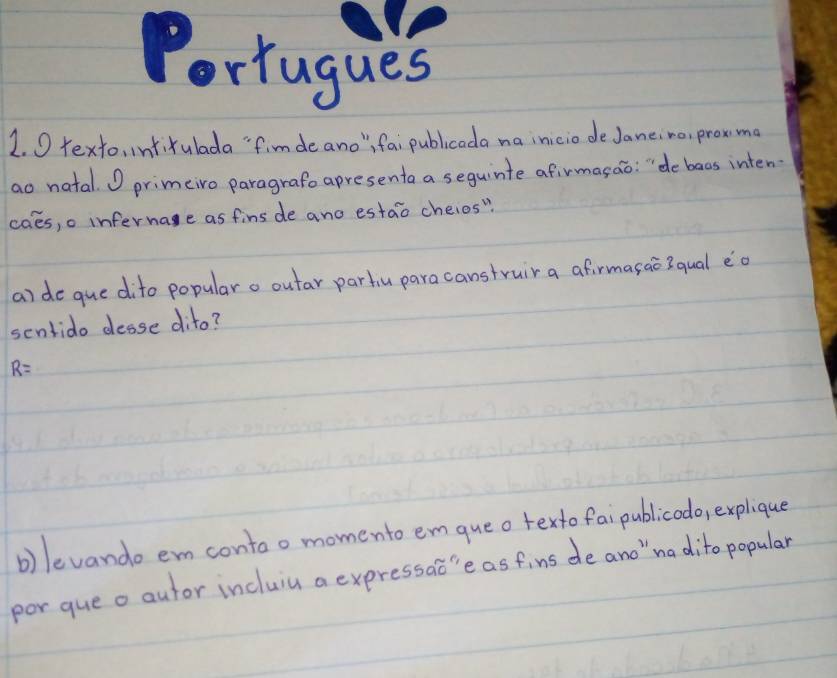 Portugues
1. O texto, intitulada "fim de ano", fai publicada na inicio de Janeiro, proxima
ao natal. O primeiro paragrafo apresenta a seguinte afirmação: "de baas inten-
caẽs, o infernase as fins de ano estão cheios".
a) de que dito popular o outar partiu para canstruir a afirmação? qual é o
sentido desse dito?
R=
b) levando em conta o momento em que o texto fai publicodo, explique
por que o autor incluiu a expressão "e as fins de ano" na dito popular